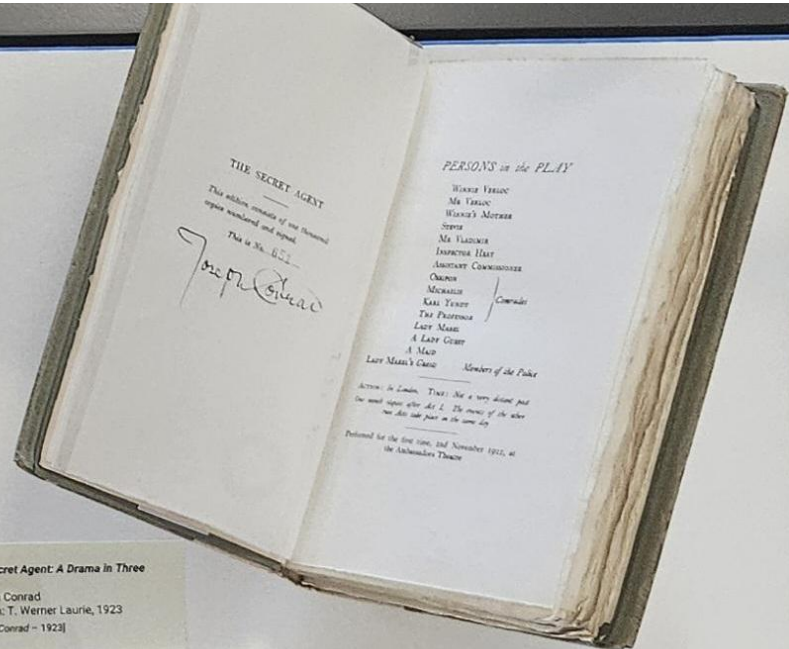 THE SECRET AGENT
This edition consists of one thousand
copies numbered and signed.
This is No. 651
Joseph Conrad
PERSONS in the PLAY
WINNIE VERLOC
MR VERLOC
WINNIE'S MOTHER
STEVIE
MR VLADIMIR
INSPECTOR HEAT
ASSISTANT COMMISSIONER
OSSIPON
MICHAELIS
KARL YUNDT
THE PROFESSOR
Comrades
LADY MABEL
A LADY GUEST
A MAID
LADY MABEL'S GUESTS Members of the Police
ACTION: In London. TIME: Not a very distant past
One week elapses after Act I. The events of the other
two Acts take place on the same day
Performed for the first time, 2nd November 1922, at
the Ambassadors Theatre
cret Agent: A Drama in Three
Conrad
: T. Werner Laurie, 1923
Conrad – 1923]